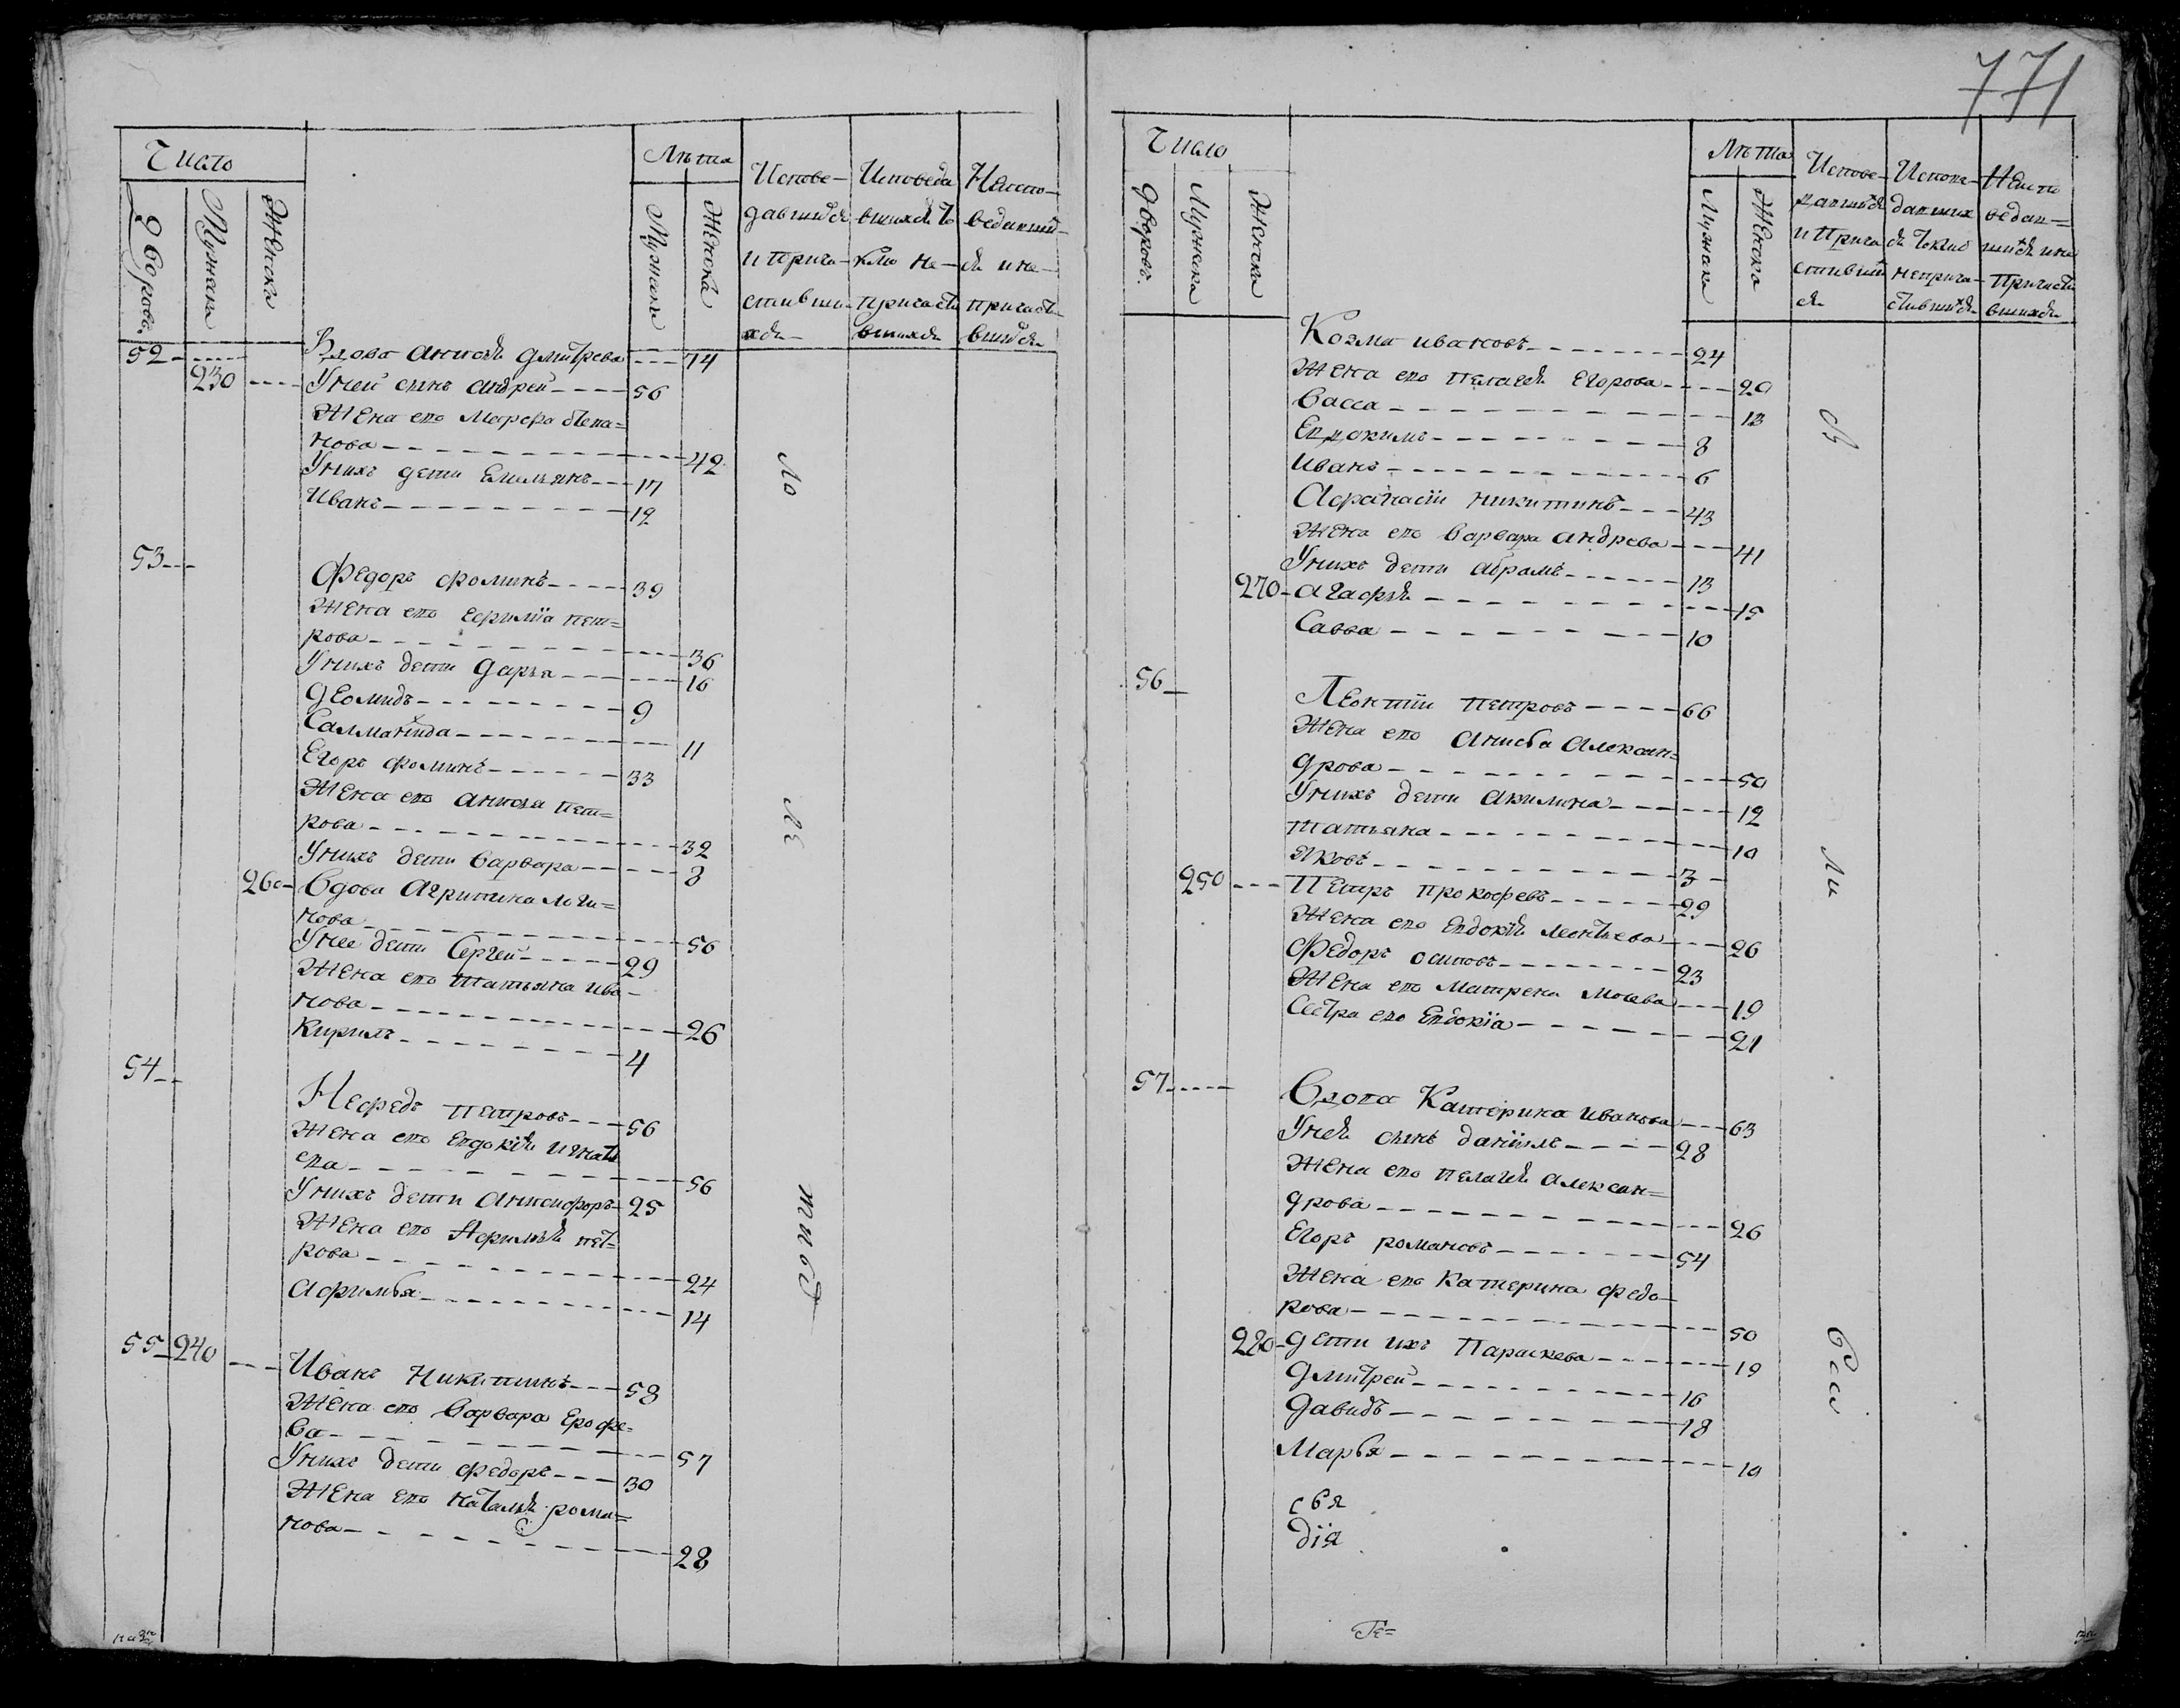 771
Число
Лѣта
Дворовъ
Мужеска
Женска
Мужеска
Женска
Испове-
давшихся
и Прича-
стивши-
хся
Исповеда
вшихся то
кмо не
Причасти
вшихся
Неиспо-
ведавших-
ся и не-
причасти
вшихся
52 Вдова Анисья Дмитрева 74
230 У ней сынъ Андрей 56
Жена его Марфа Степа=
нова 42
У нихъ дети Емельянъ 17
Иванъ 12
53 Федоръ Фоминъ 39
Жена его Ефимïа пет=
рова 36
У нихъ дети Дарья 16
Деомидъ 9
Саламанида 11
Егоръ Фоминъ 33
Жена его Анисья Пет=
рова 32
У нихъ дети Варвара 8
260 Вдова Агрипина Логи=
нова 56
У нее дети Сергей 29
Жена его Татьяна Ива-
нова 26
Кирилъ 4
54 Нефедъ Петровъ 56
Жена его Евдокия Игнать
ева 56
У нихъ дети Анисифоръ 25
Жена его Афимья пет=
рова 24
Афимья 14
55 240 Иванъ Никитинъ 58
Жена его Варвара Ерофе=
ва 57
У нихъ дети Федоръ 30
Жена его Наталья рома=
нова 28
Число
Лѣта
Дворовъ
Мужеска
Женска
Мужеска
Женска
Испове-
давшихся
и Прича
стивших
ся
Испове-
давших
ся токмо
неприча-
стившихся
Неиспо
ведав=
шихся и не
Причасти
вшихся
Козма Ивановъ 24
Жена его Пелагея Егорова 20
Васса 13
Евдокимъ 8
Иванъ 6
Афанасïй Никитинъ 43
Жена его Варвара Андрева 41
У нихъ дети Абрамъ 13
270 Агафья 15
Савва 10
56 Леонтïй Петровъ 66
Жена его Анисья Алексан=
дрова 50
У нихъ дети Акилина 12
Татьяна 10
Яковъ 3
250 Петръ Прокофевъ 29
Жена его Евдокïя Леонтьева 26
Федоръ Осиповъ 23
Жена его Матрена Мосева 19
Сестра его Евдокïа 21
57 Вдова Катерина Иванова 63
У ней сынъ Данïилъ 28
Жена его Пелагея Алексан=
дрова 26
Егоръ романовъ 54
Жена его Катерина Федо-
рова 50
280 Дети ихъ Параскева 19
Дмитрей 16
Давидъ 18
Марья 10